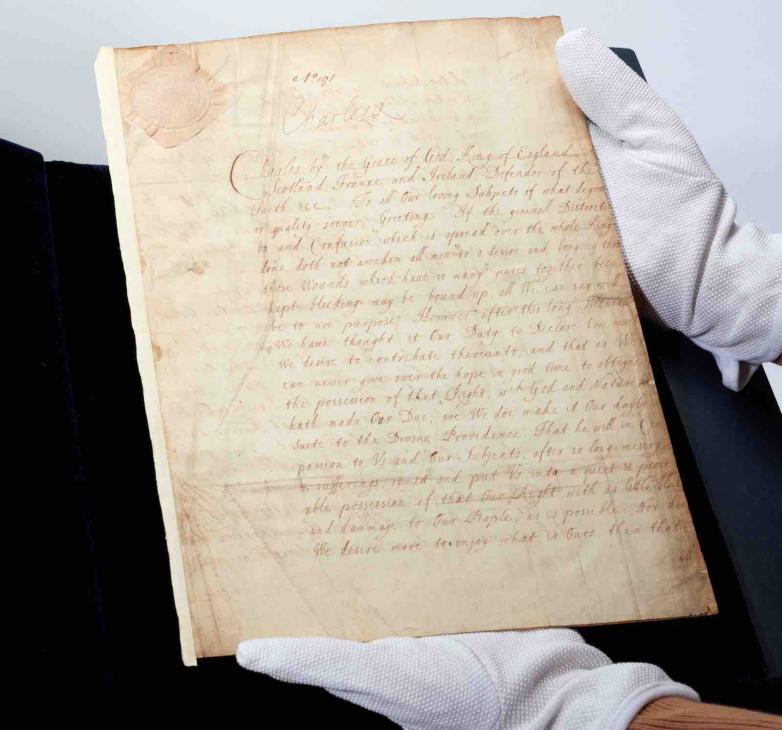 No 191
Charles R
Charles by the Grace of God, King of England
Scotland, France and Ireland, Defender of the
Faith &c. To all Our loving Subjects of what degree
or quality soever, Greeting. If the generall Distracti
on and Confusion which is spread over the whole King
dome, doth not awaken all men to a desire and longing that
those Wounds which have so many yeares together been
kept bleeding may be bound up, all We can say will
be to noe purpose. However after this long Silence
We have thought it Our Duty to Declare how much
We desire to contribute thereunto, and that as We
can never give over the hope in good time to obteyne
the possession of that Right, wch God and Nature
hath made Our Due, soe We doe make it Our dayly
Suite to the Devine Providence, That he will in Com
passion to Us and Our Subjects, after so long misery
& sufferings, remit and put Us into a quiet & peace
able possession of that Our Right with as little blood
and dammage to Our People, as is possible. Nor doe
We desire more to enjoy what is Ours, then that